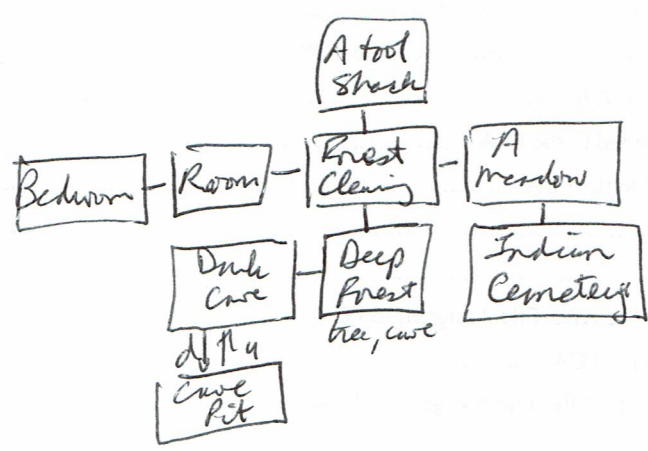 A tool
Shack
Bedroom
Room
Forest
Clearing
A
meadow
Dark
Cave
Deep
Forest
Indian
Cemetery
tree, cave
d u
Cave
Pit